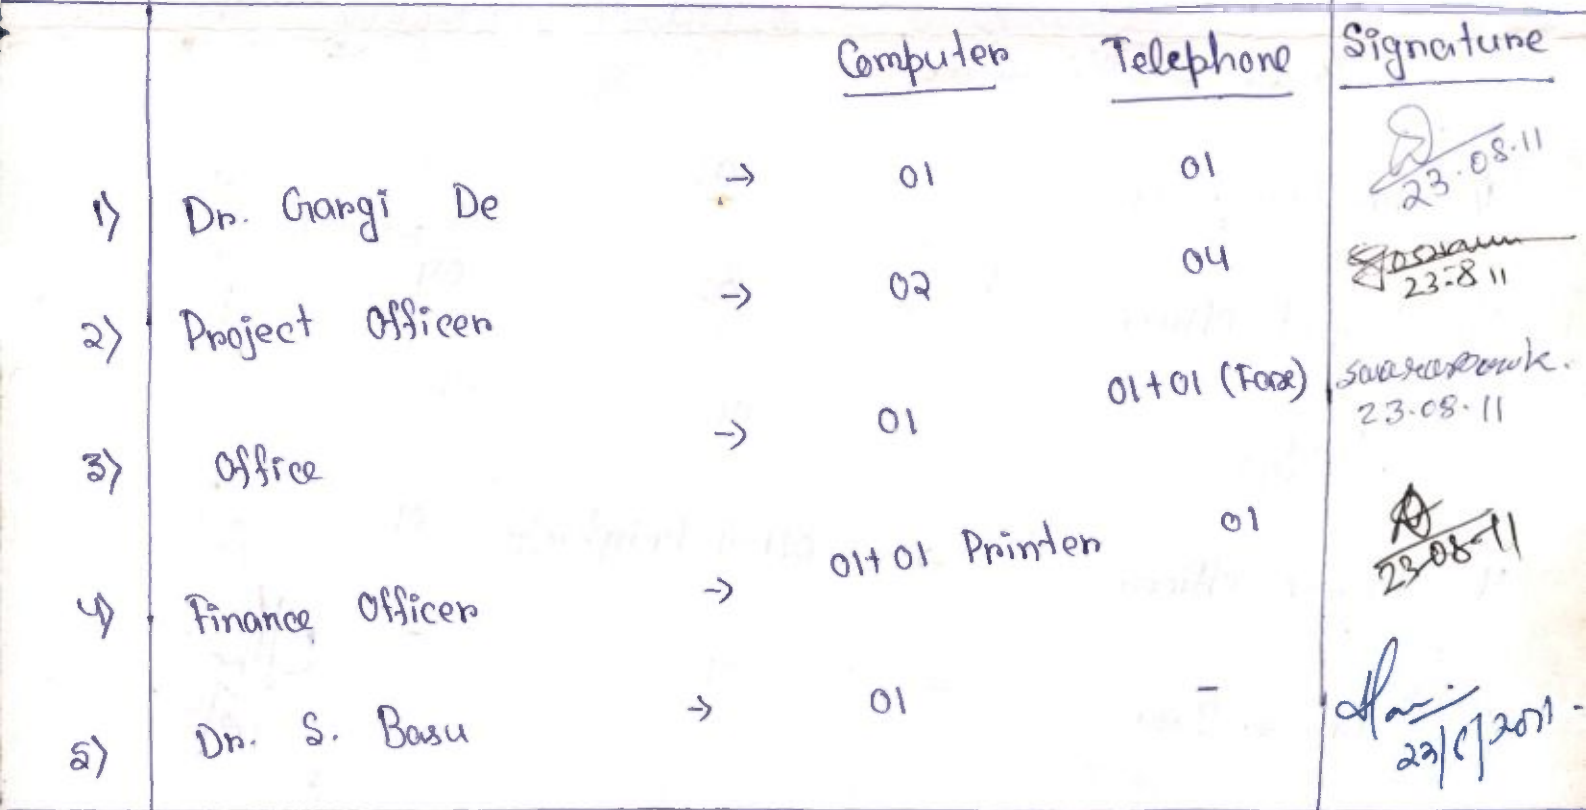 Computer Telephone Signature
1) Dr. Gargi De → 01 01
23.08.11
2) Project Officer → 02 04
23-8 11
3) Office → 01 01+01 (Fax)
23.08.11
4) Finance Officer → 01+01 Printer 01
23-08-11
5) Dr. S. Basu → 01 –
23/8/2011